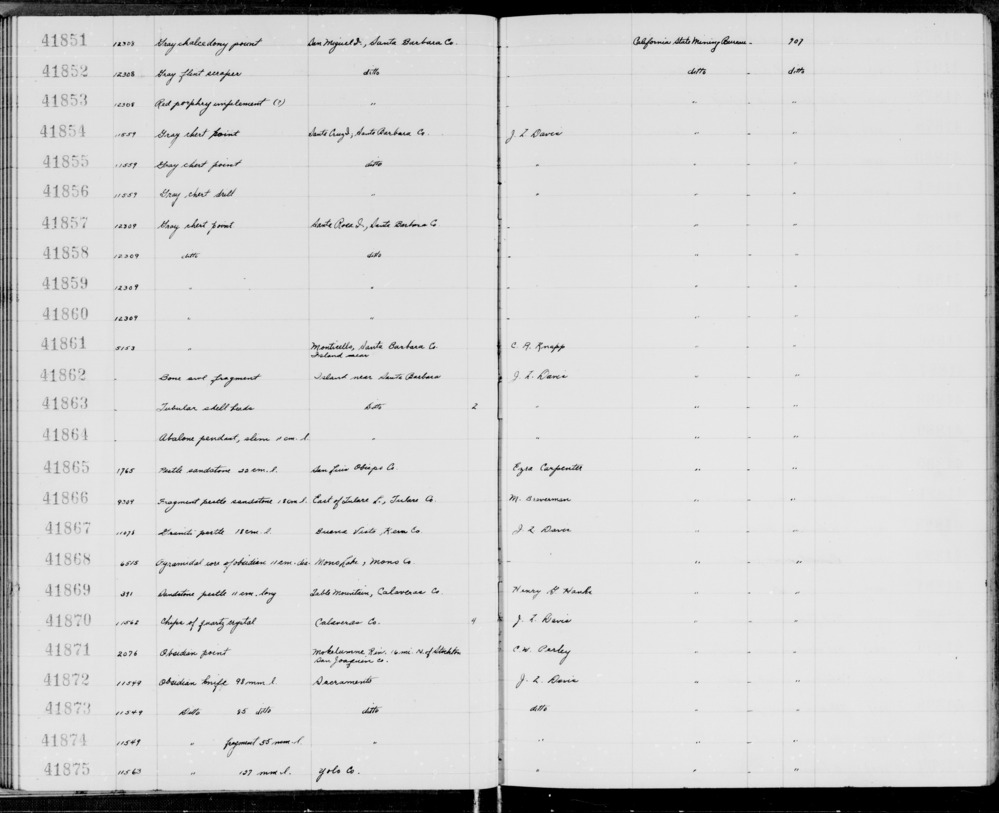 41851 12308 Gray chalcedony point San Miguel I., Santa Barbara Co. - California State Mining Bureau - 907
41852 12308 Gray flint scraper ditto " ditto - ditto
41853 12308 Red porphry implement (?) " - " - "
41854 11559 Gray chert point Santa Cruz I., Santa Barbara Co. J. L. Davis " - "
41855 11559 Gray chert point ditto " " - "
41856 11559 Gray chert drill " " " - "
41857 12309 Gray chert point Santa Rosa I., Santa Barbara Co. - " - "
41858 12309 ditto ditto - " - "
41859 12309 " " - " - "
41860 12309 " " - " - "
41861 5153 " Monticello, Santa Barbara Co. C. A. Knapp " - "
Island near
41862 - Bone awl fragment Island near Santa Barbara J. L. Davis " - "
41863 - Tubular shell beads Ditto 2 " " - "
41864 - Abalone pendant, slim 1 cm. l. " " " - "
41865 1765 Pestle sandstone 20 cm. l. San Luis Obispo Co. Ezra Carpenter " - "
41866 9709 Fragment pestle sandstone 18 cm l. East of Tulare L., Tulare Co. M. Braverman " - "
41867 11078 Granite pestle 18 cm. l. Buena Vista, Kern Co. J. L. Davis " - "
41868 6515 Pyramidal core of obsidian 11 cm. dia. Mono Lake, Mono Co. - " - "
41869 391 Sandstone pestle 11 cm. long Table Mountain, Calaveras Co. Henry G. Hanks " - "
41870 11562 Chips of quartz crystal Calaveras Co. 4 J. L. Davis " - "
41871 2076 Obsidian point Mokelumne Riv. 16 mi. N. of Stockton C. W. " - "
San Joaquin Co.
41872 11549 Obsidian knife 98 mm l. Sacramento J. L. Davis " - "
41873 11549 Ditto 85 ditto ditto ditto " - "
41874 11549 " fragment 55 mm. l. " " " - "
41875 11563 " 127 mm l. Yolo Co. " " - "